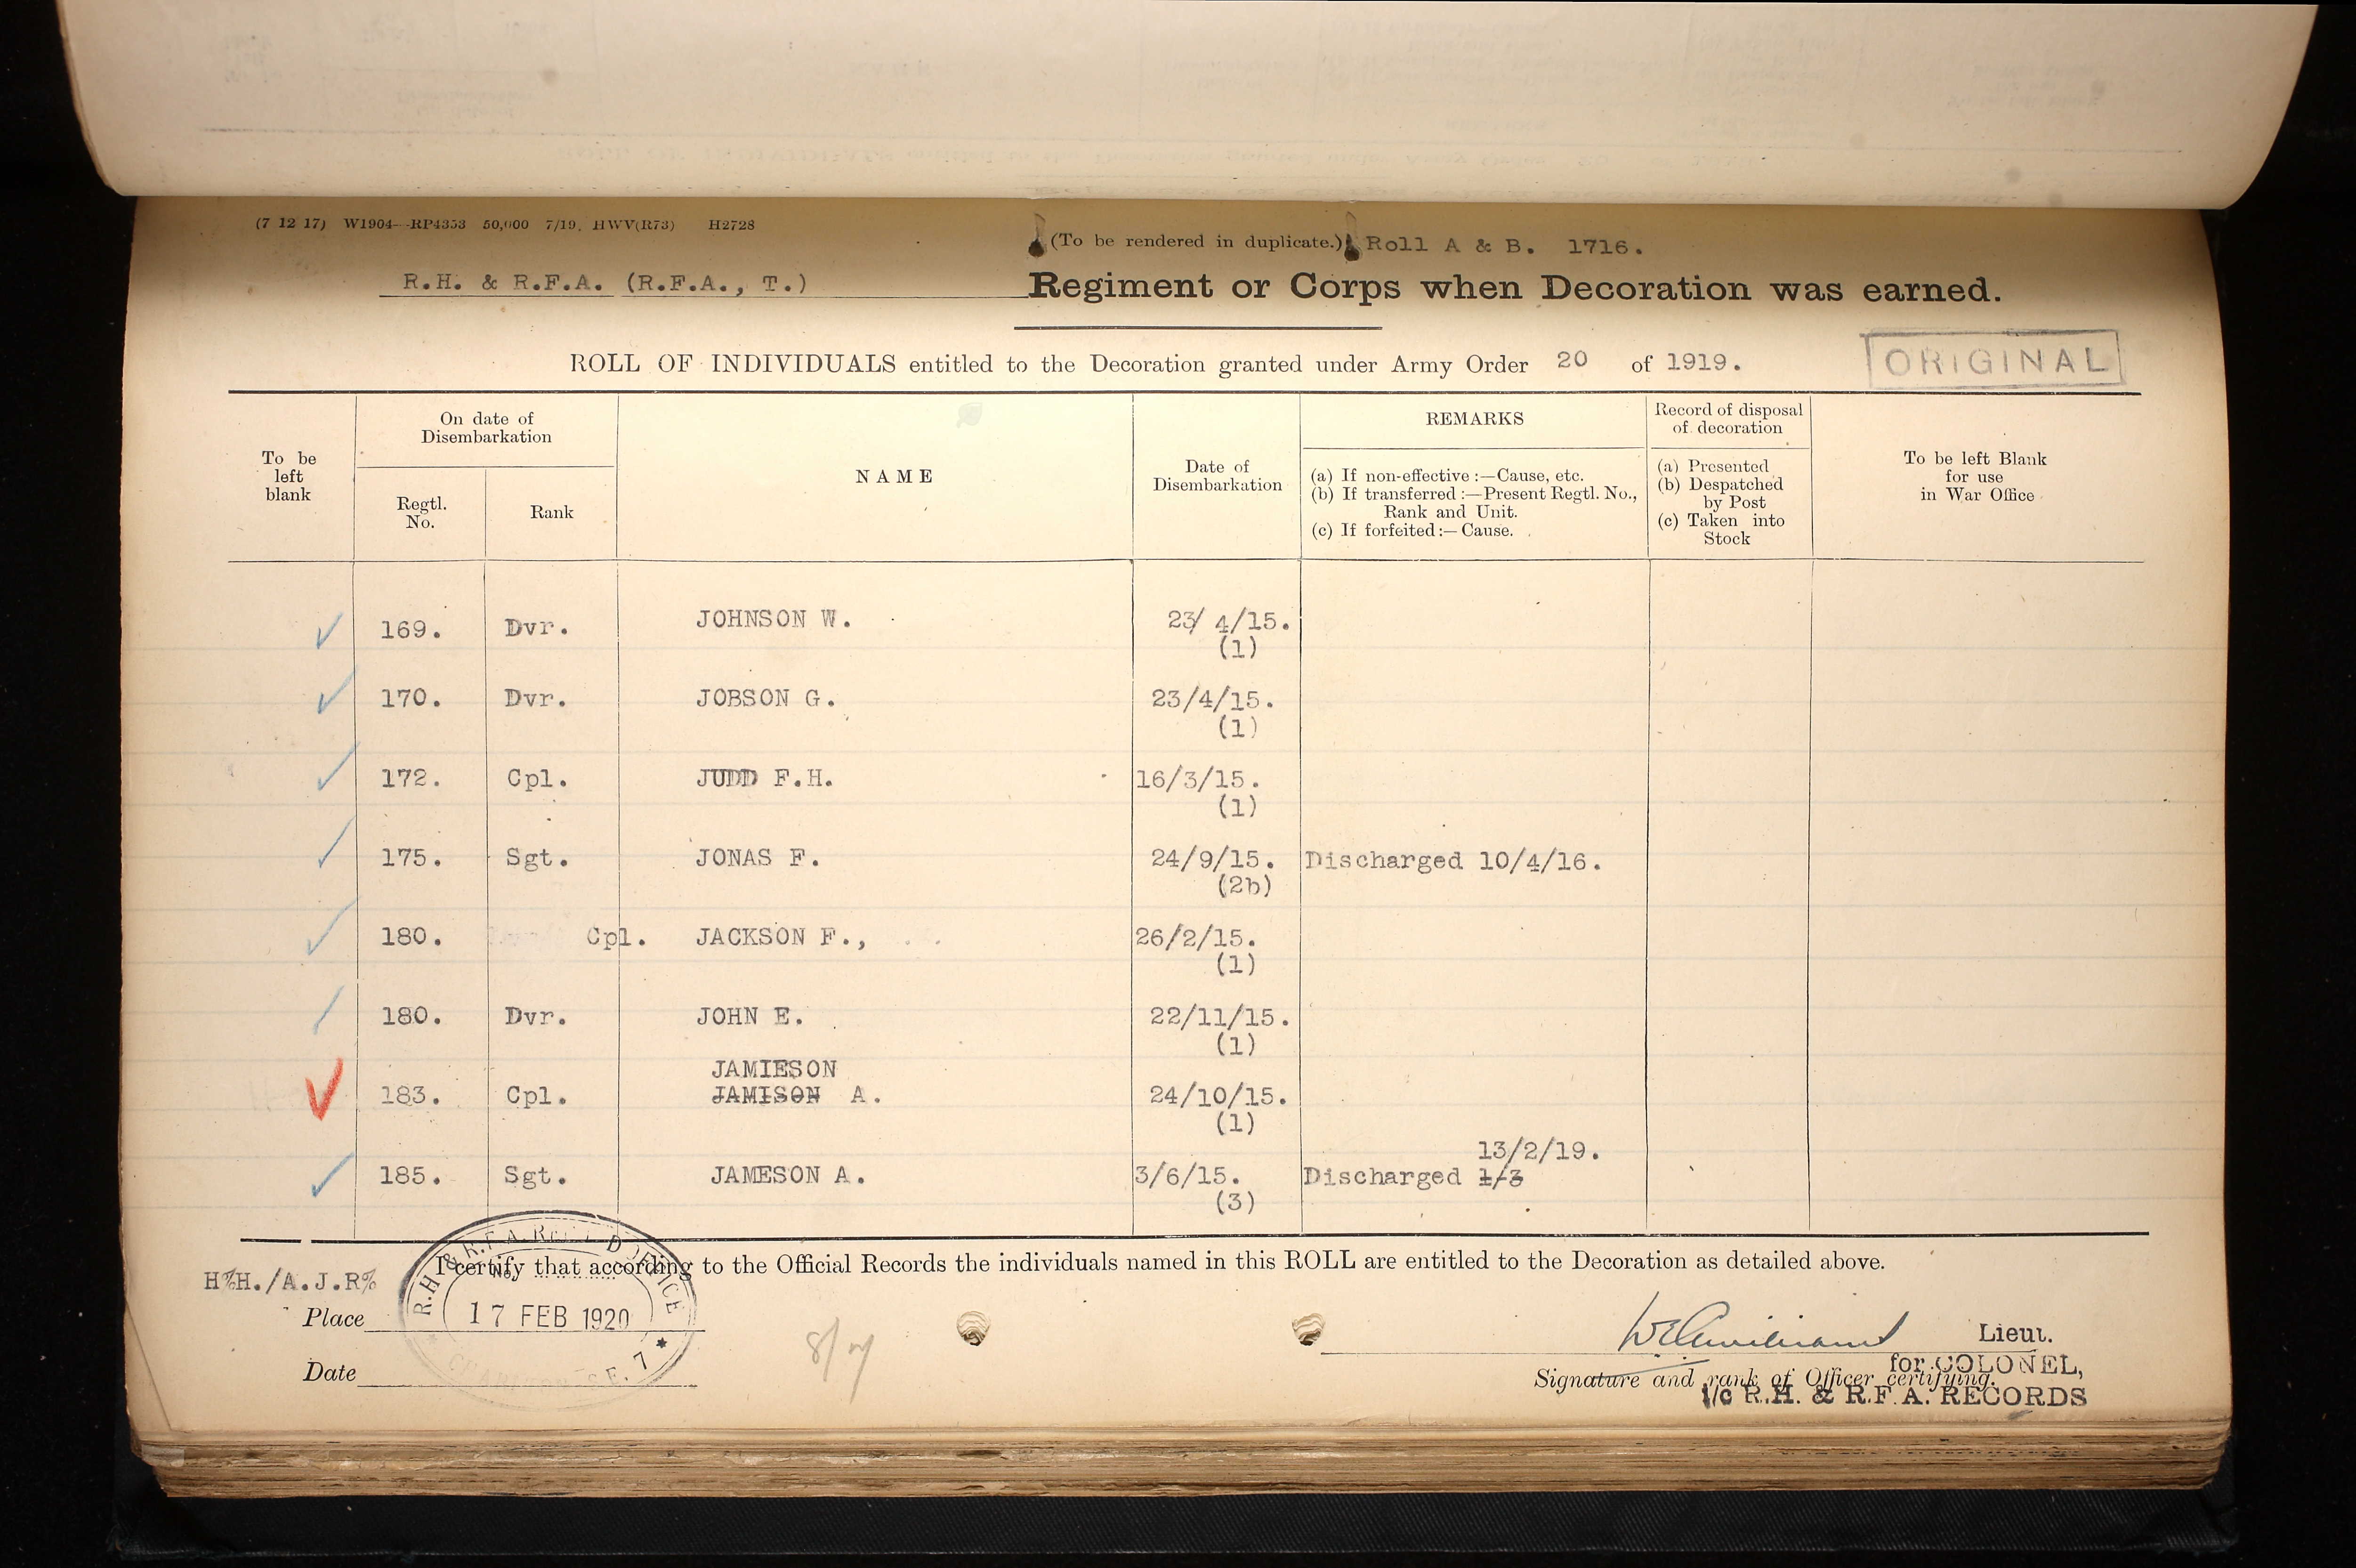 (7 12 17) W1904--RP4353 50,000 7/19, HWV(R73) H2728
(To be rendered in duplicate.) Roll A & B. 1716.
R.H. & R.F.A. (R.F.A., T.) Regiment or Corps when Decoration was earned.
ROLL OF INDIVIDUALS entitled to the Decoration granted under Army Order 20 of 1919.
ORIGINAL
To be left blank
On date of Disembarkation
Regtl. No.
Rank
NAME
Date of Disembarkation
REMARKS
(a) If non-effective :—Cause, etc.
(b) If transferred :—Present Regtl. No., Rank and Unit.
(c) If forfeited :— Cause.
Record of disposal of decoration
(a) Presented
(b) Despatched by Post
(c) Taken into Stock
To be left Blank for use in War Office
169. Dvr. JOHNSON W. 23/ 4/15.
(1)
170. Dvr. JOBSON G. 23/4/15.
(1)
172. Cpl. JUDD F.H. 16/3/15.
(1)
175. Sgt. JONAS F. 24/9/15. Discharged 10/4/16.
(2b)
180. Cpl. JACKSON F., 26/2/15.
(1)
180. Dvr. JOHN E. 22/11/15.
(1)
JAMIESON
183. Cpl. JAMISON A. 24/10/15.
(1)
13/2/19.
185. Sgt. JAMESON A. 3/6/15. Discharged 1/3
(3)
I certify that according to the Official Records the individuals named in this ROLL are entitled to the Decoration as detailed above.
H%H./A.J.R%
R.H. & R.F.A. OFFICE
No.
17 FEB 1920
E. 7
Place
Lieut.
Date
for COLONEL,
Signature and rank of Officer certifying.
i/c R.H. & R.F.A. RECORDS